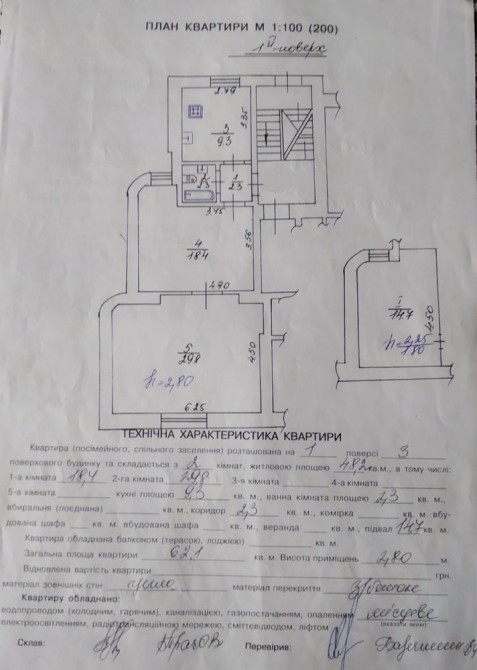 ПЛАН КВАРТИРИ М 1:100 (200)
1й поверх
2.79
3
9.3
3.35
2
2.3
1
2.3
3.75
4
18.4
3.55
4.90
I
14.7
4.50
h=2,25
1.80
5
29.8
4.50
h=2,80
6.25
ТЕХНІЧНА ХАРАКТЕРИСТИКА КВАРТИРИ
Квартира (посімейного, спільного заселення) розташована на 1 поверсі 3
поверхового будинку та складається з 2 кімнат, житловою площею 48,2 кв.м., в тому числі:
1-а кімната 18,4 2-га кімната 29,8 3-я кімната 4-а кімната
5-а кімната кухні площею 9,3 кв. м., ванна кімната площею 2,3 кв. м.,
вбиральня (поєднана) кв. м., коридор 2,3 кв. м., комірка кв. м. вбу-
дована шафа кв. м. вбудована шафа кв. м., веранда кв. м., підвал 14,7 кв. м.
Квартира обладнана балконом (терасою, лоджією) кв. м.
Загальна площа квартири 62,1 кв. м. Висота приміщень 2,80 м.
Відновлена вартість квартири грн.
матеріал зовнішніх стін матеріал перекриття
Квартиру обладнано:
водопроводом (холодним, гарячим), каналізацією, газопостачанням, опаленням місцеве
електроосвітленням, радіотрансляційною мережею, сміттєвідводом, ліфтом (вказати яким)
Склав: Перевірив: